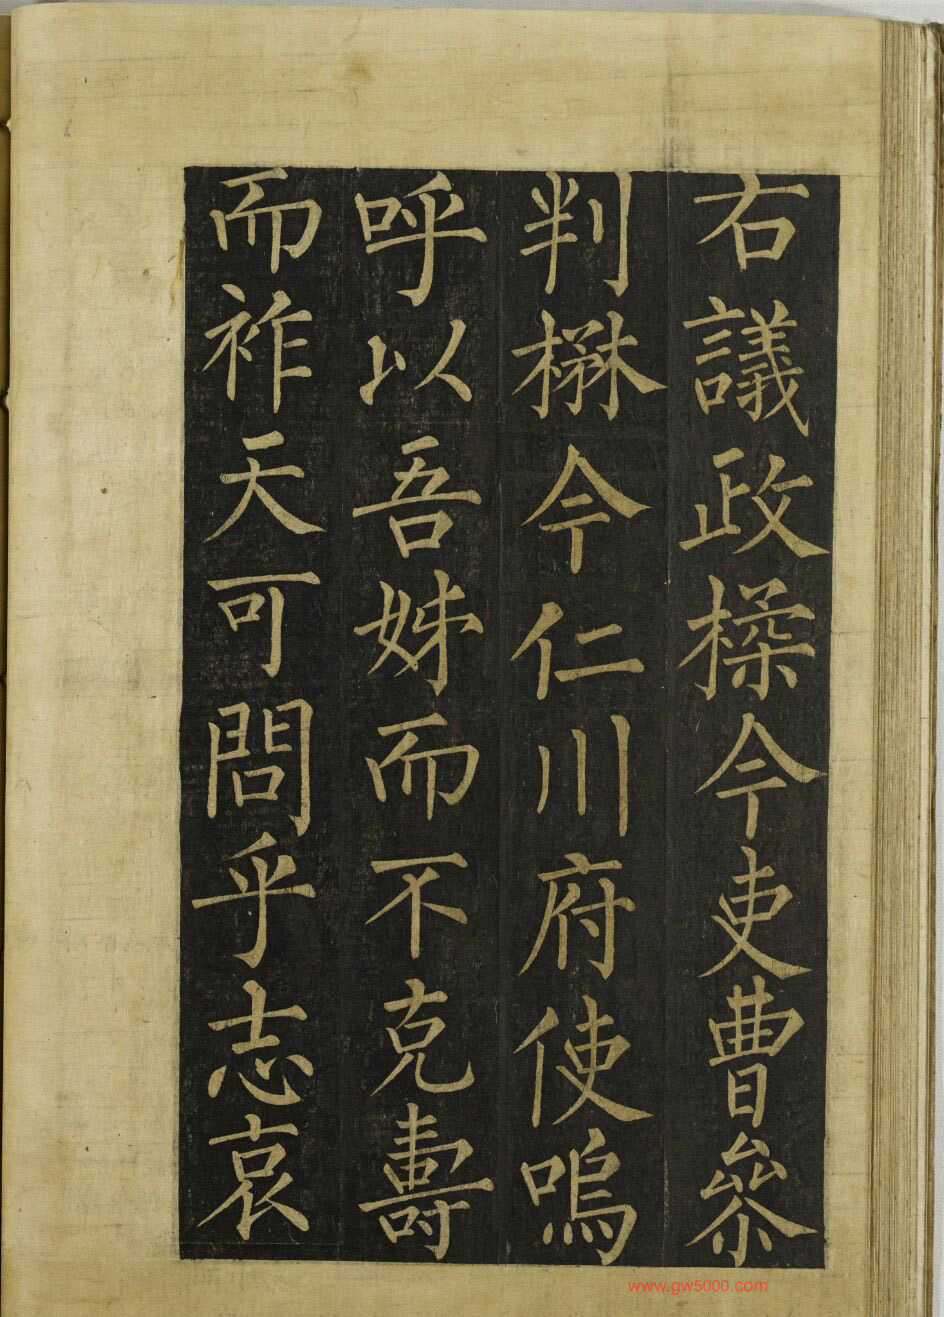 右議政楺今吏曹叅
判楙今仁川府使嗚
呼以吾姊而不克壽
而祚天可問乎志哀
www.gw5000.com